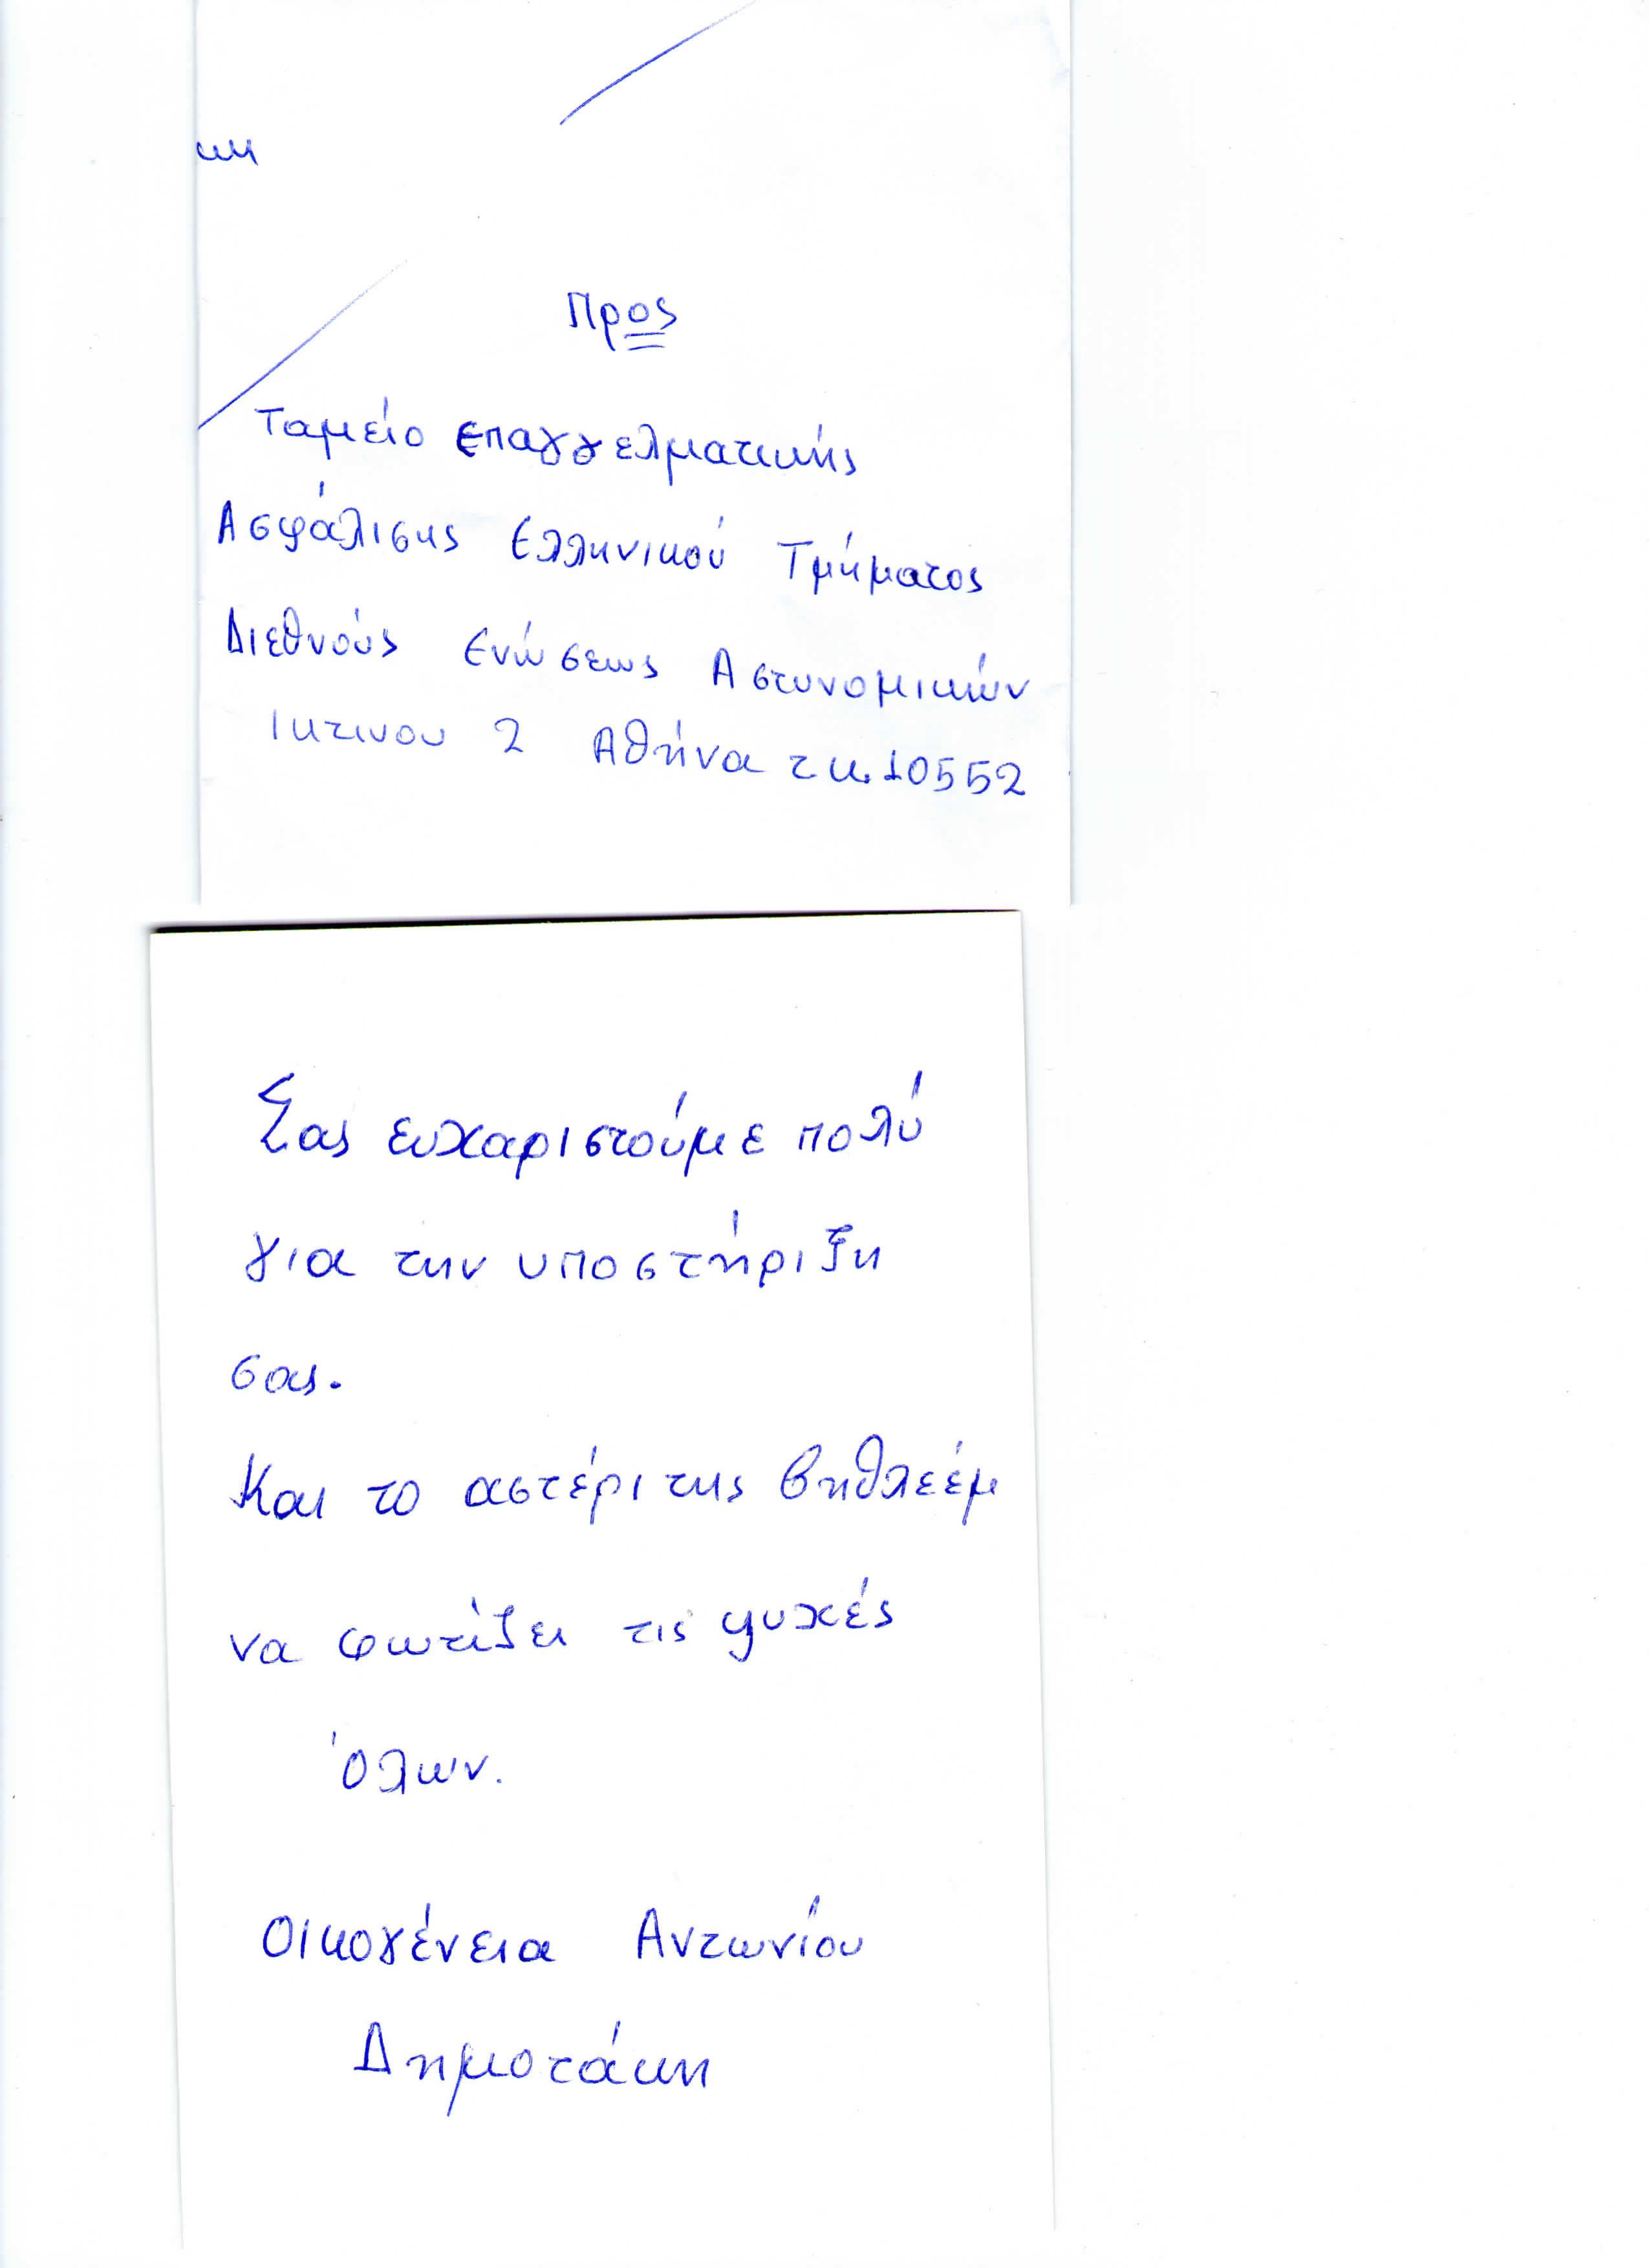 κη
Προς
Ταμείο Επαγγελματικής
Ασφάλισης Ελληνικού Τμήματος
Διεθνούς Ενώσεως Αστυνομικών
Ικτινου 2 Αθήνα τκ. 10552
Σας ευχαριστούμε πολύ
για την υποστήριξη
σας.
Και το αστέρι της Βηθλεέμ
να φωτίζει τις ψυχές
Όλων.
Οικογένεια Αντωνίου
Δημοτάκη